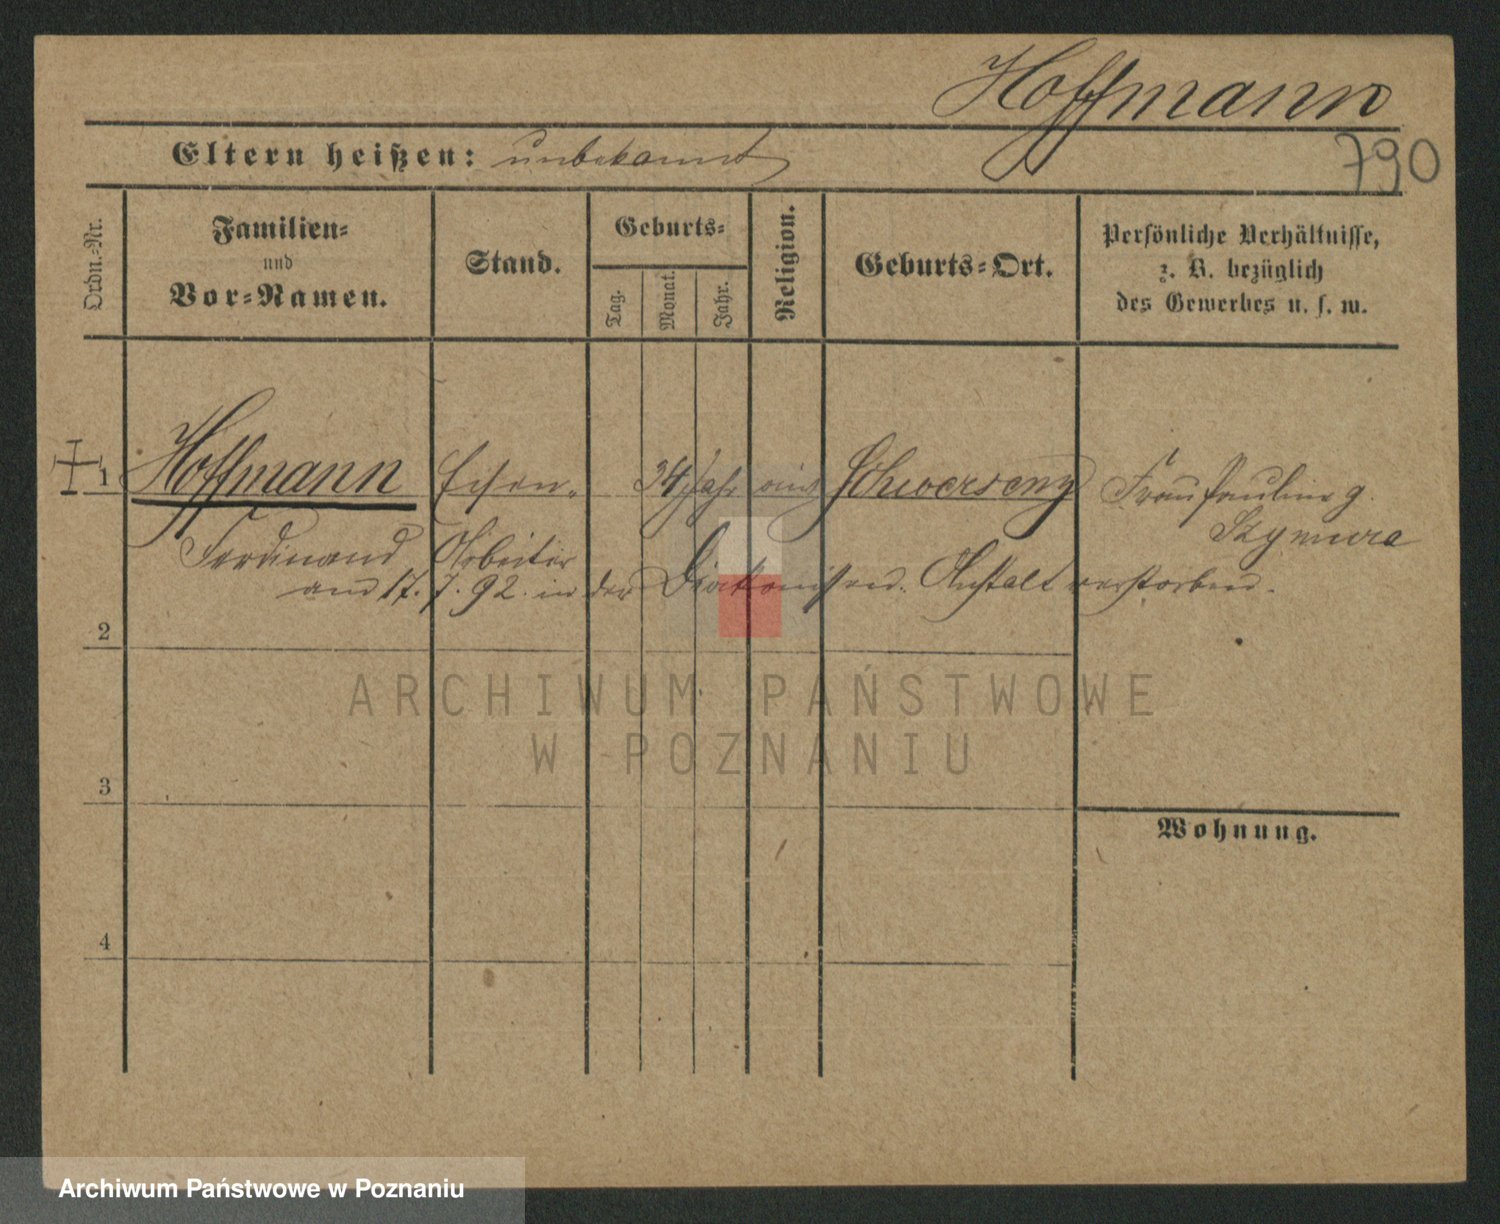 Hoffmann
790
Eltern heißen: unbekannt
Ordn.-Nr.
Familien-
und
Vor-Namen.
Stand.
Geburts-
Tag.
Monat.
Jahr.
Religion.
Geburts-Ort.
Persönliche Verhältnisse,
z. B. bezüglich
des Gewerbes u. s. w.
1 Hoffmann Eisen- 34 Jahr Schwersenz Frau Pauline g.
Ferdinand Arbeiter Szymura
am 17. 7. 92. in der Diakonissen. Anstalt verstorben.
2
3
4
Wohnung.
ARCHIWUM PAŃSTWOWE
W POZNANIU
Archiwum Państwowe w Poznaniu